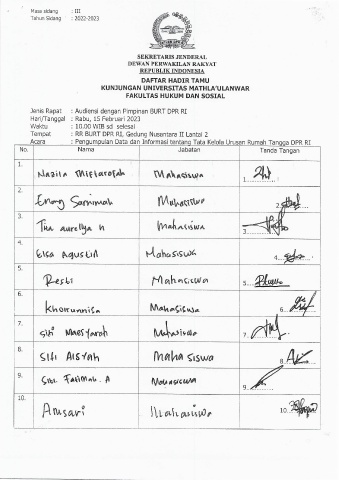 Masa sidang : III
Tahun Sidang : 2022-2023
SEKRETARIS JENDERAL
DEWAN PERWAKILAN RAKYAT
REPUBLIK INDONESIA
DAFTAR HADIR TAMU
KUNJUNGAN UNIVERSITAS MATHLA'ULANWAR
FAKULTAS HUKUM DAN SOSIAL
Jenis Rapat : Audiensi dengan Pimpinan BURT DPR RI
Hari/Tanggal : Rabu, 15 Februari 2023
Waktu : 10.00 WIB sd selesai
Tempat : RR BURT DPR RI, Gedung Nusantara II Lantai 2
Acara : Pengumpulan Data dan Informasi tentang Tata Kelola Urusan Rumah Tangga DPR RI
No. Nama Jabatan Tanda Tangan
1. Nazila Miftarofah Mahasiswa 1
2. Enong Sarnimah Mahasiswa 2
3. Tia aurellya n Mahasiswa 3
4. Elsa Agustin Mahasiswa 4
5. Resti Mahasiswa 5
6. Khoirunnisa Mahasiswa 6
7. Siti Maesyaroh Mahasiswa 7
8. SITI AISYAH Mahasiswa 8
9. Siti Fatimah. A Mahasiswa 9
10. Ansari Mahasiswa 10